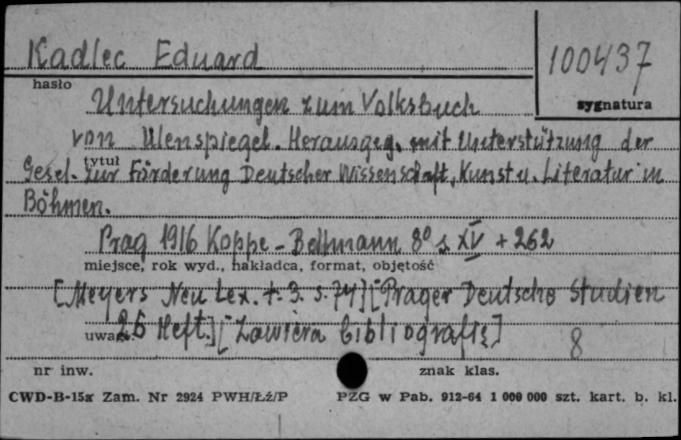 Kadlec Eduard
100437
hasło
sygnatura
Untersuchungen zum Volksbuch
von Ulenspiegel. Herausgeg. mit Unterstützung der
tytuł
Gesel. zur Förderung Deutscher Wissenschaft, Kunst u. Literatur in
Böhmen.
Prag 1916 Koppe-Bellmann 8° s. XV + 262
miejsce, rok wyd., nakładca, format, objętość
[Meyers Neu Lex. t. 3. s. 74] [Prager Deutsche Studien
uwagi:
26 Heft.] [Zawiera bibliografię]
8
nr inw.
znak klas.
CWD-B-15x Zam. Nr 2924 PWH/Łź/P
PZG w Pab. 912-64 1 000 000 szt. kart. b. kl.